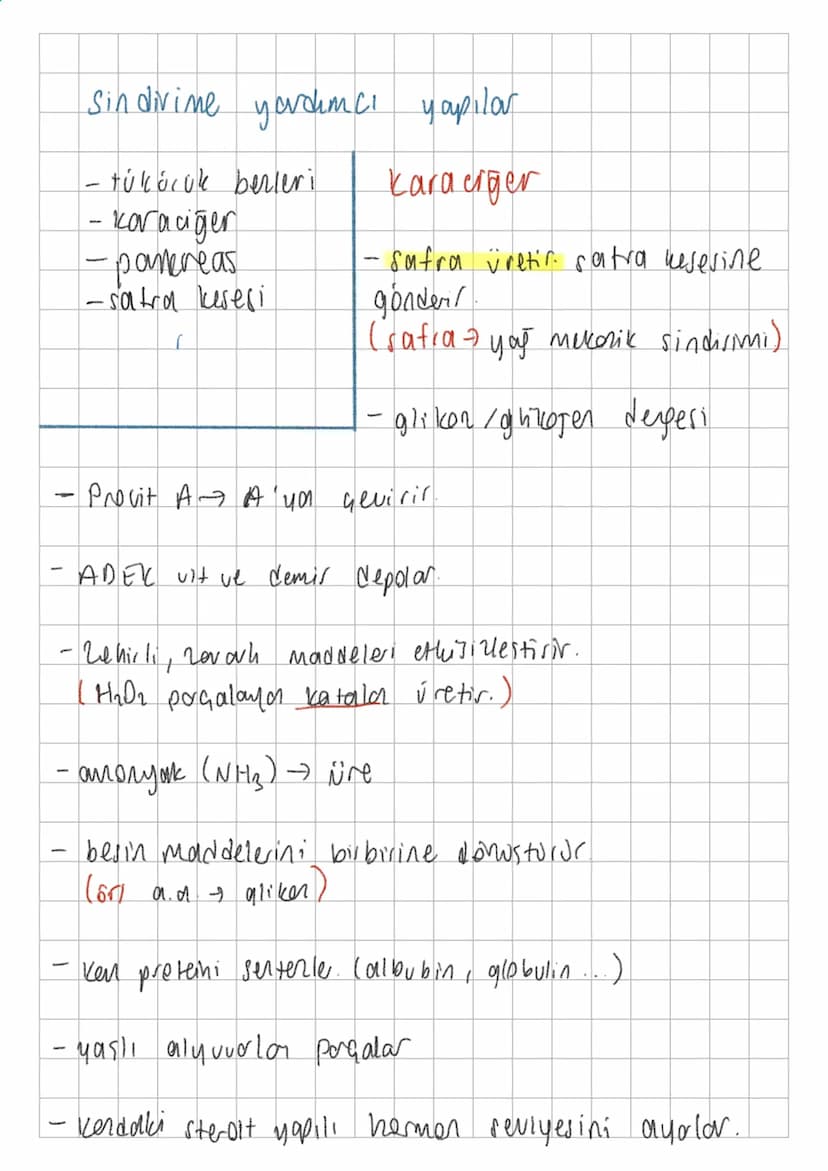 sindirime yardımcı yapılar
- tükürük bezleri
- karaciğer
- pankreas
- safra kesesi
karaciğer
- safra üretir. safra kesesine
gönderir.
(safra → yağ mekanik sindirimi)
- glikoz/glikojen dengesi
- Provit A → A'ya çevirir.
- ADEK vit ve demir depolar.
- Zehirli, zararlı maddeleri etkisizleştirir.
(H₂O₂ parçalayan katalaz üretir.)
- amonyak (NH₃) → üre
- besin maddelerini birbirine dönüştürür.
(ör/ a.a. → glikoz)
- kan proteini sentezle. (albubin, globulin...)
- yaşlı alyuvarlar parçalar
- kandaki steroit yapılı hormon seviyesini ayarlar.